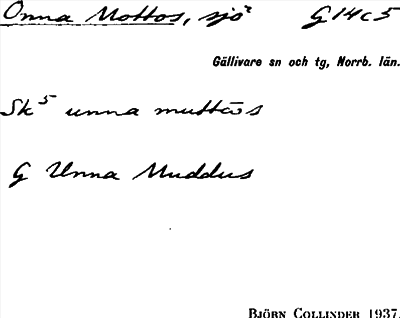 Onna Mottos, sjö² G 14 c 5
Gällivare sn och tg, Norrb. län.
Sk⁵ unna muttōs
G Unna Muddus
BJÖRN COLLINDER 1937.